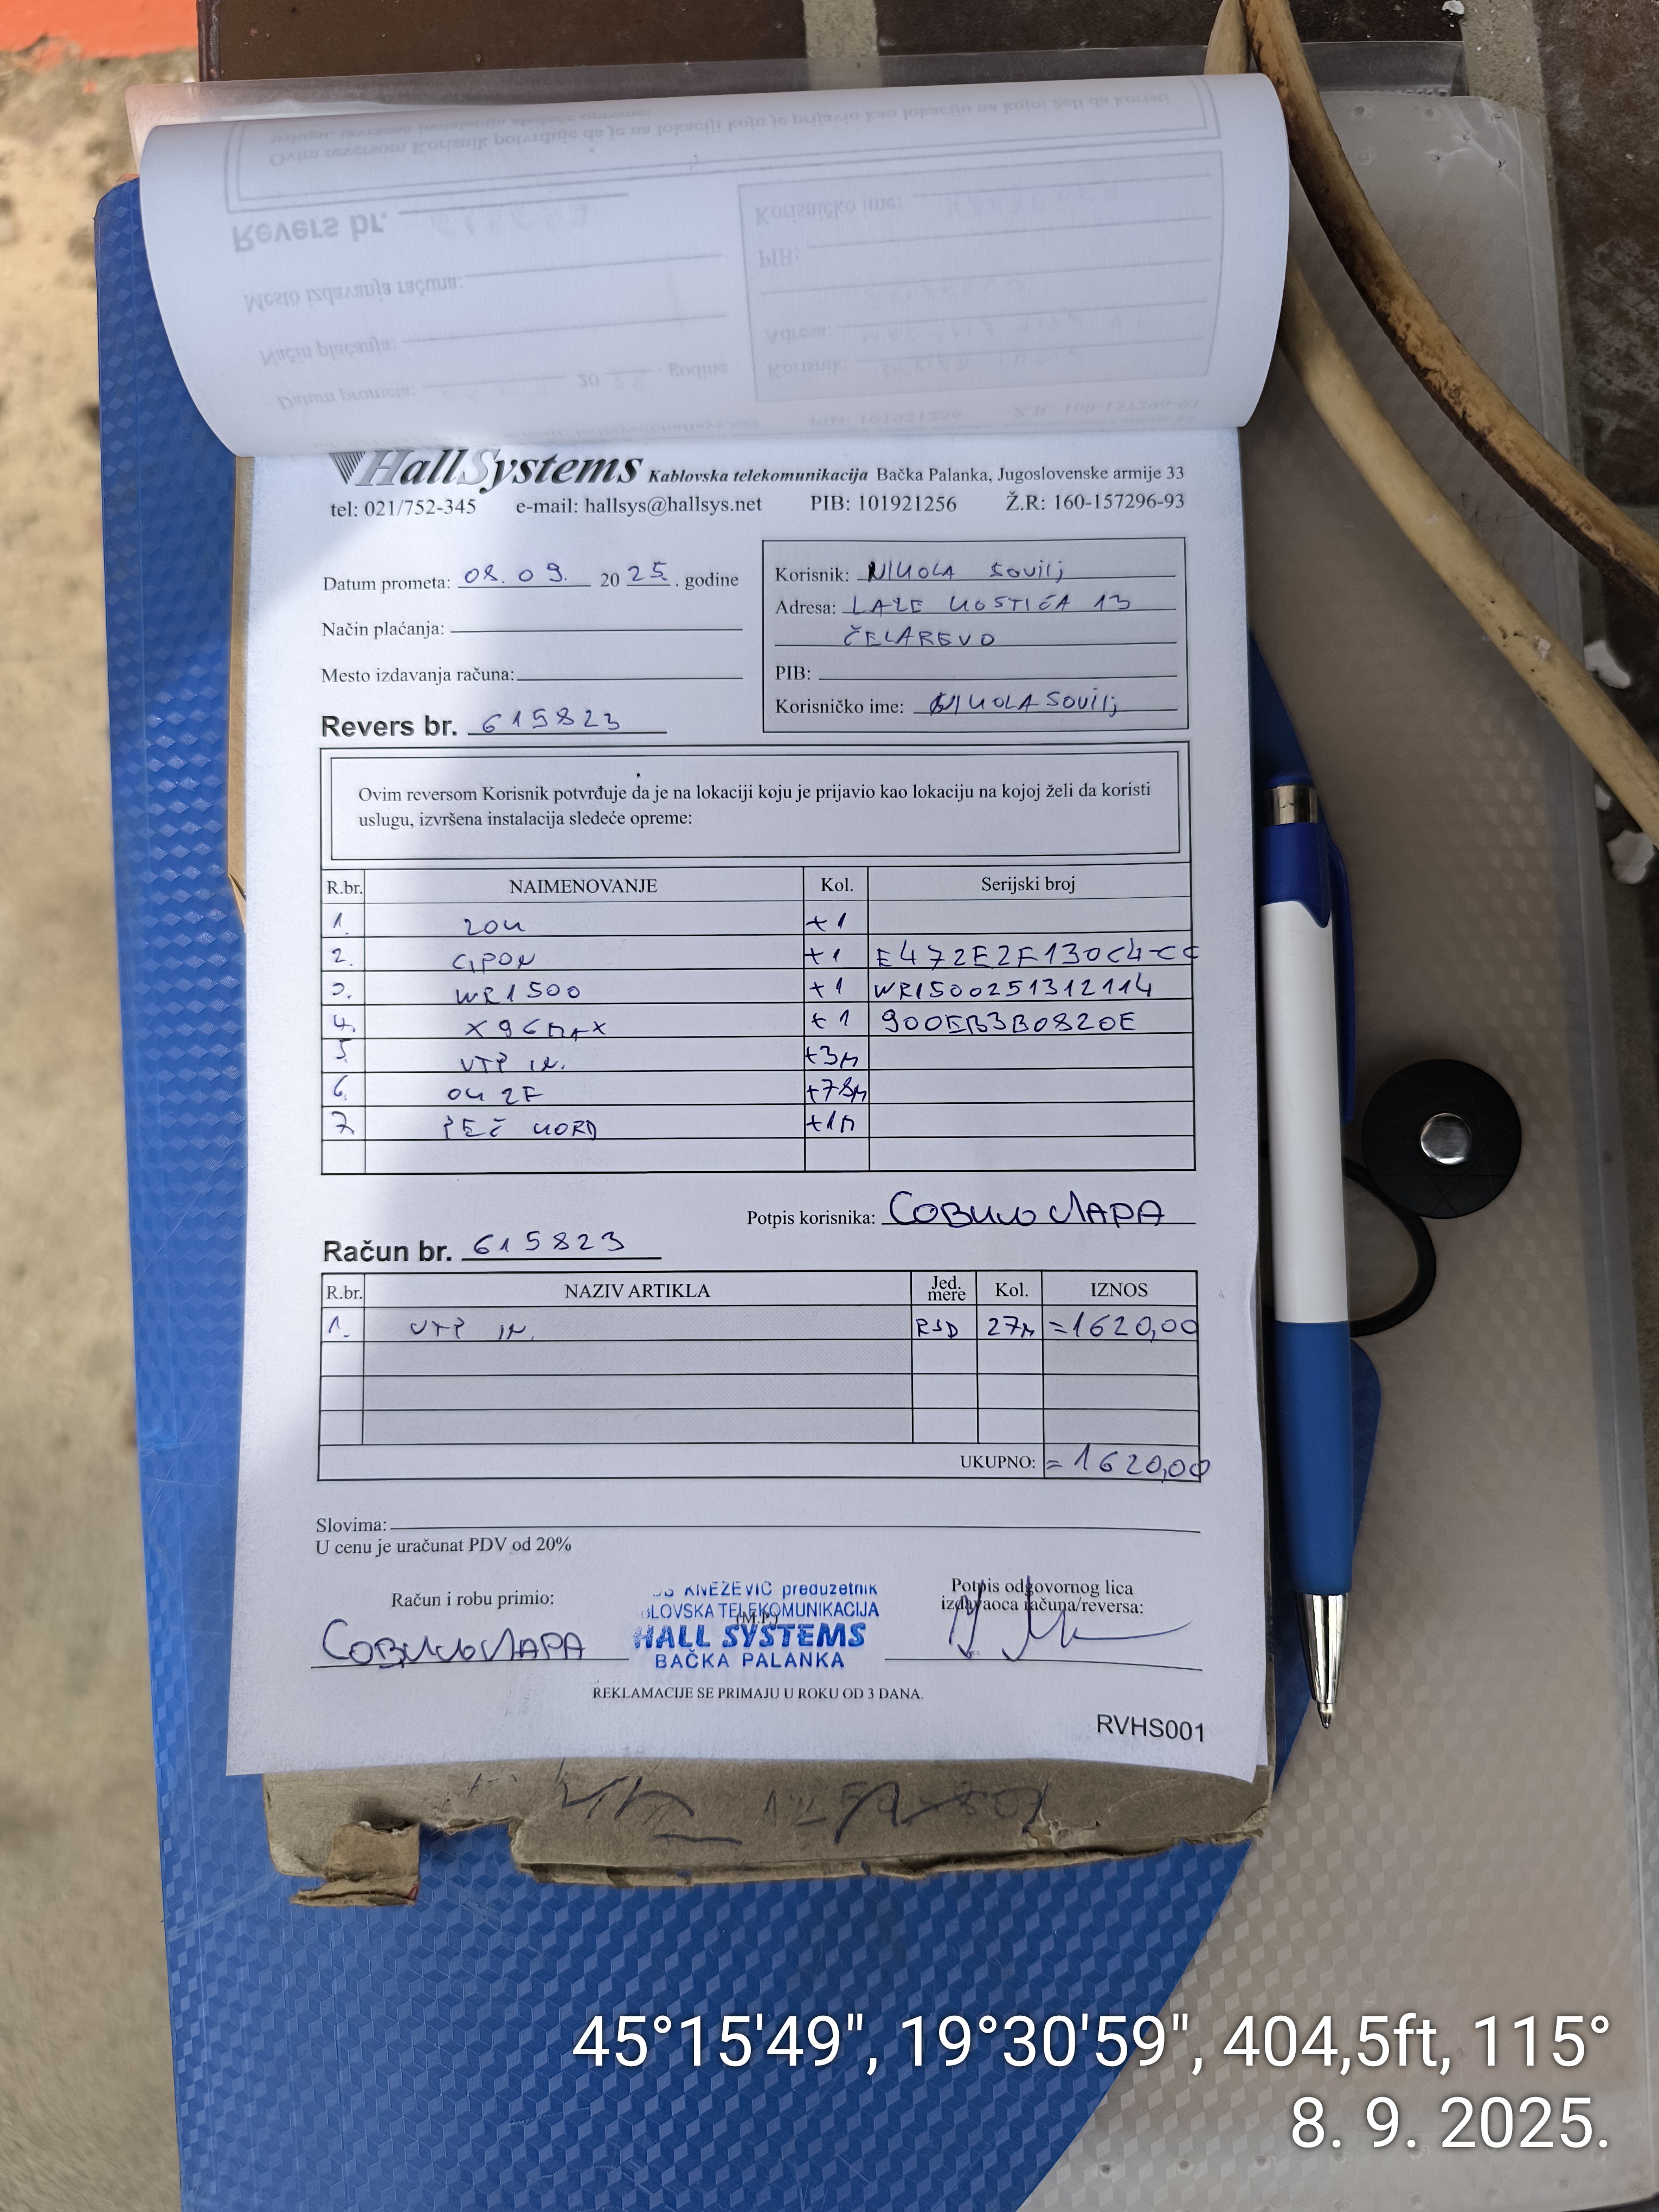 HallSystems Kablovska telekomunikacija Bačka Palanka, Jugoslovenske armije 33
tel: 021/752-345 e-mail: hallsys@hallsys.net PIB: 101921256 Ž.R: 160-157296-93
Datum prometa: 08. 09. 20 25. godine
Način plaćanja:
Mesto izdavanja računa:
Revers br. 615823
Korisnik: NIKOLA Sovilj
Adresa: LAZE KOSTIĆA 13
ČELAREVO
PIB:
Korisničko ime: NIKOLASovilj
Ovim reversom Korisnik potvrđuje da je na lokaciji koju je prijavio kao lokaciju na kojoj želi da koristi
uslugu, izvršena instalacija sledeće opreme:
R.br. NAIMENOVANJE Kol. Serijski broj
1. ZOK +1
2. GPON +1 E472E2F130C4-CC
3. WR1500 +1 WR1500251312114
4. X96MAX +1 900EB3B0820E
5. UTP IN. +3m
6. OK 2F +78m
7. PEČ KORD +1m
Potpis korisnika: СОВИЉ ЛАРА
Račun br. 615823
R.br. NAZIV ARTIKLA Jed. mere Kol. IZNOS
1. UTP IN. RSD 27m =1620,00
UKUPNO: =1620,00
Slovima:
U cenu je uračunat PDV od 20%
Račun i robu primio:
СОВИЉ ЛАРА
KNEŽEVIĆ preduzetnik
(M.P.)
HALL SYSTEMS
BAČKA PALANKA
TELEKOMUNIKACIJA
Potpis odgovornog lica
izdavaoca računa/reversa:
REKLAMACIJE SE PRIMAJU U ROKU OD 3 DANA.
RVHS001
45°15'49", 19°30'59", 404,5ft, 115°
8. 9. 2025.